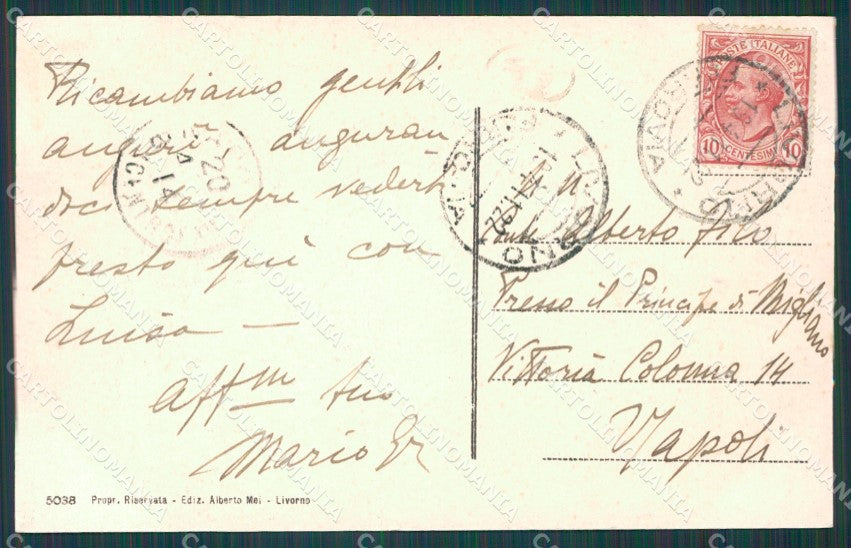 Ricambiamo gentili
auguri, auguran
doci sempre vederti
presto qui con
Luisa —
affm tuo
Mario
5038 Propr. Riservata - Ediz. Alberto Mei - Livorno
POSTE ITALIANE
10 CENTESIMI 10
LIVORNO
FERROVIA
LIVORNO
FERROVIA
Alberto
Presso il Principe di Migliano
Vittoria Colonna 14
Napoli
CARTOLINOMANIA